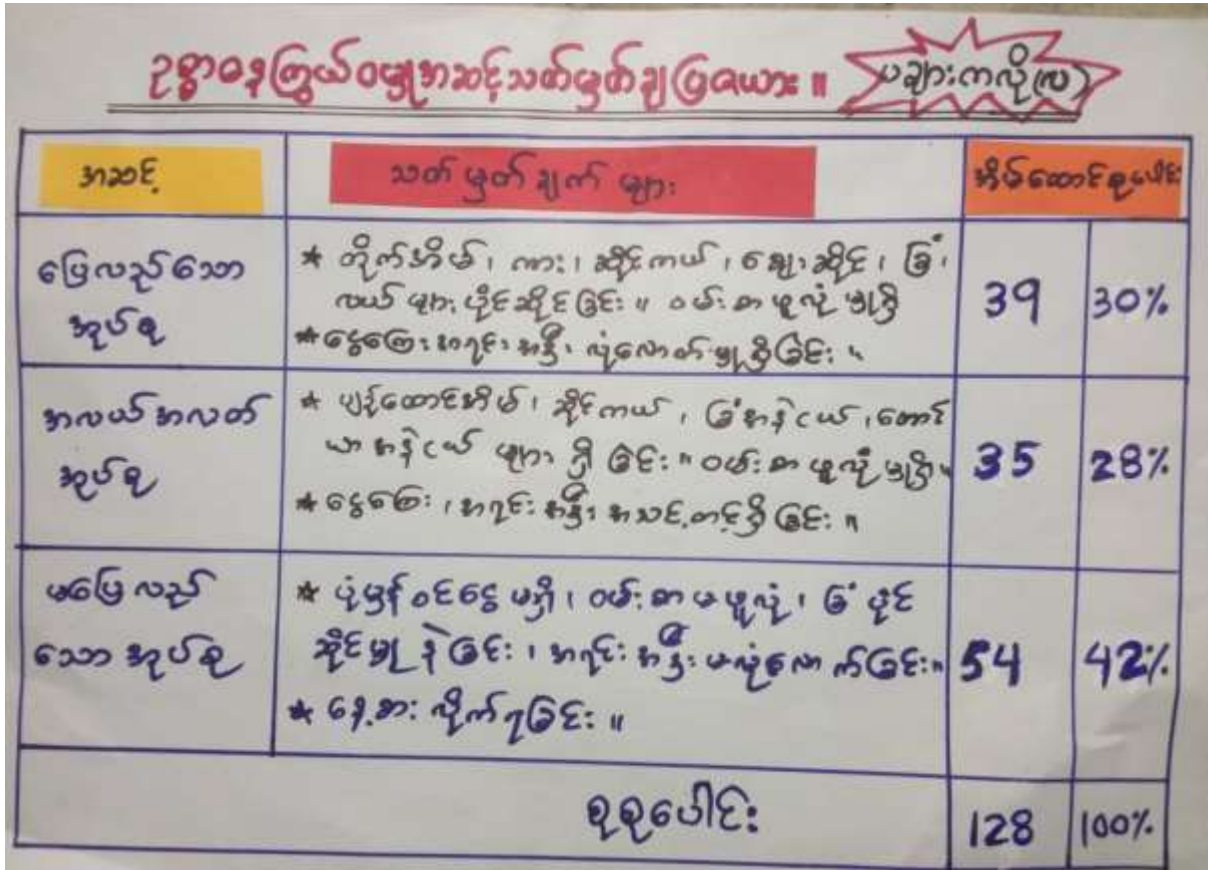 ဥစ္စာဓနကြွယ်ဝမှုအဆင့်သတ်မှတ်ချပြဇယား။ ပချားကလို(လ)
အဆင့် သတ်မှတ်ချက်များ အိမ်ထောင်စုပေါင်း
ပြေလည်သော
အုပ်စု
* တိုက်အိမ်၊ ကား၊ ဆိုင်ကယ်၊ ဈေးဆိုင်၊ ခြံ၊
လယ်များ ပိုင်ဆိုင်ခြင်း။ ဝမ်းစာဖူလုံမှုရှိ
* ငွေကြေးအရင်းအနှီး လုံလောက်မှုရှိခြင်း။
39 30%
အလယ်အလတ်
အုပ်စု
* ပျဉ်ထောင်အိမ်၊ ဆိုင်ကယ်၊ ခြံအနဲငယ်၊ တောင်
ယာအနဲငယ်များ ရှိခြင်း။ ဝမ်းစာဖူလုံမှုရှိ။
* ငွေကြေး၊ အရင်းအနှီး အသင့်တင့်ရှိခြင်း။
35 28%
မပြေလည်
သောအုပ်စု
* ပုံမှန်ဝင်ငွေမရှိ၊ ဝမ်းစာမဖူလုံ၊ ခြံပိုင်
ဆိုင်မှုနဲခြင်း၊ အရင်းအနှီးမလုံလောက်ခြင်း။
* နေ့စားလိုက်ရခြင်း။
54 42%
စုစုပေါင်း 128 100%